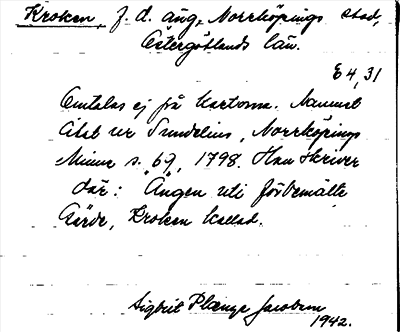 Kroken, f. d. äng, Norrköpings stad,
Östergötlands län.
E 4, 31
Omtalas ej på kartorna. Namnet
citat ur Sundelius, Norrköpings
Minne s. 69, 1798. Han skriver
där: "Ängen uti förbemälte
Gärde, Kroken kallad.
Sigbrit Plænge Jacobson
1942.